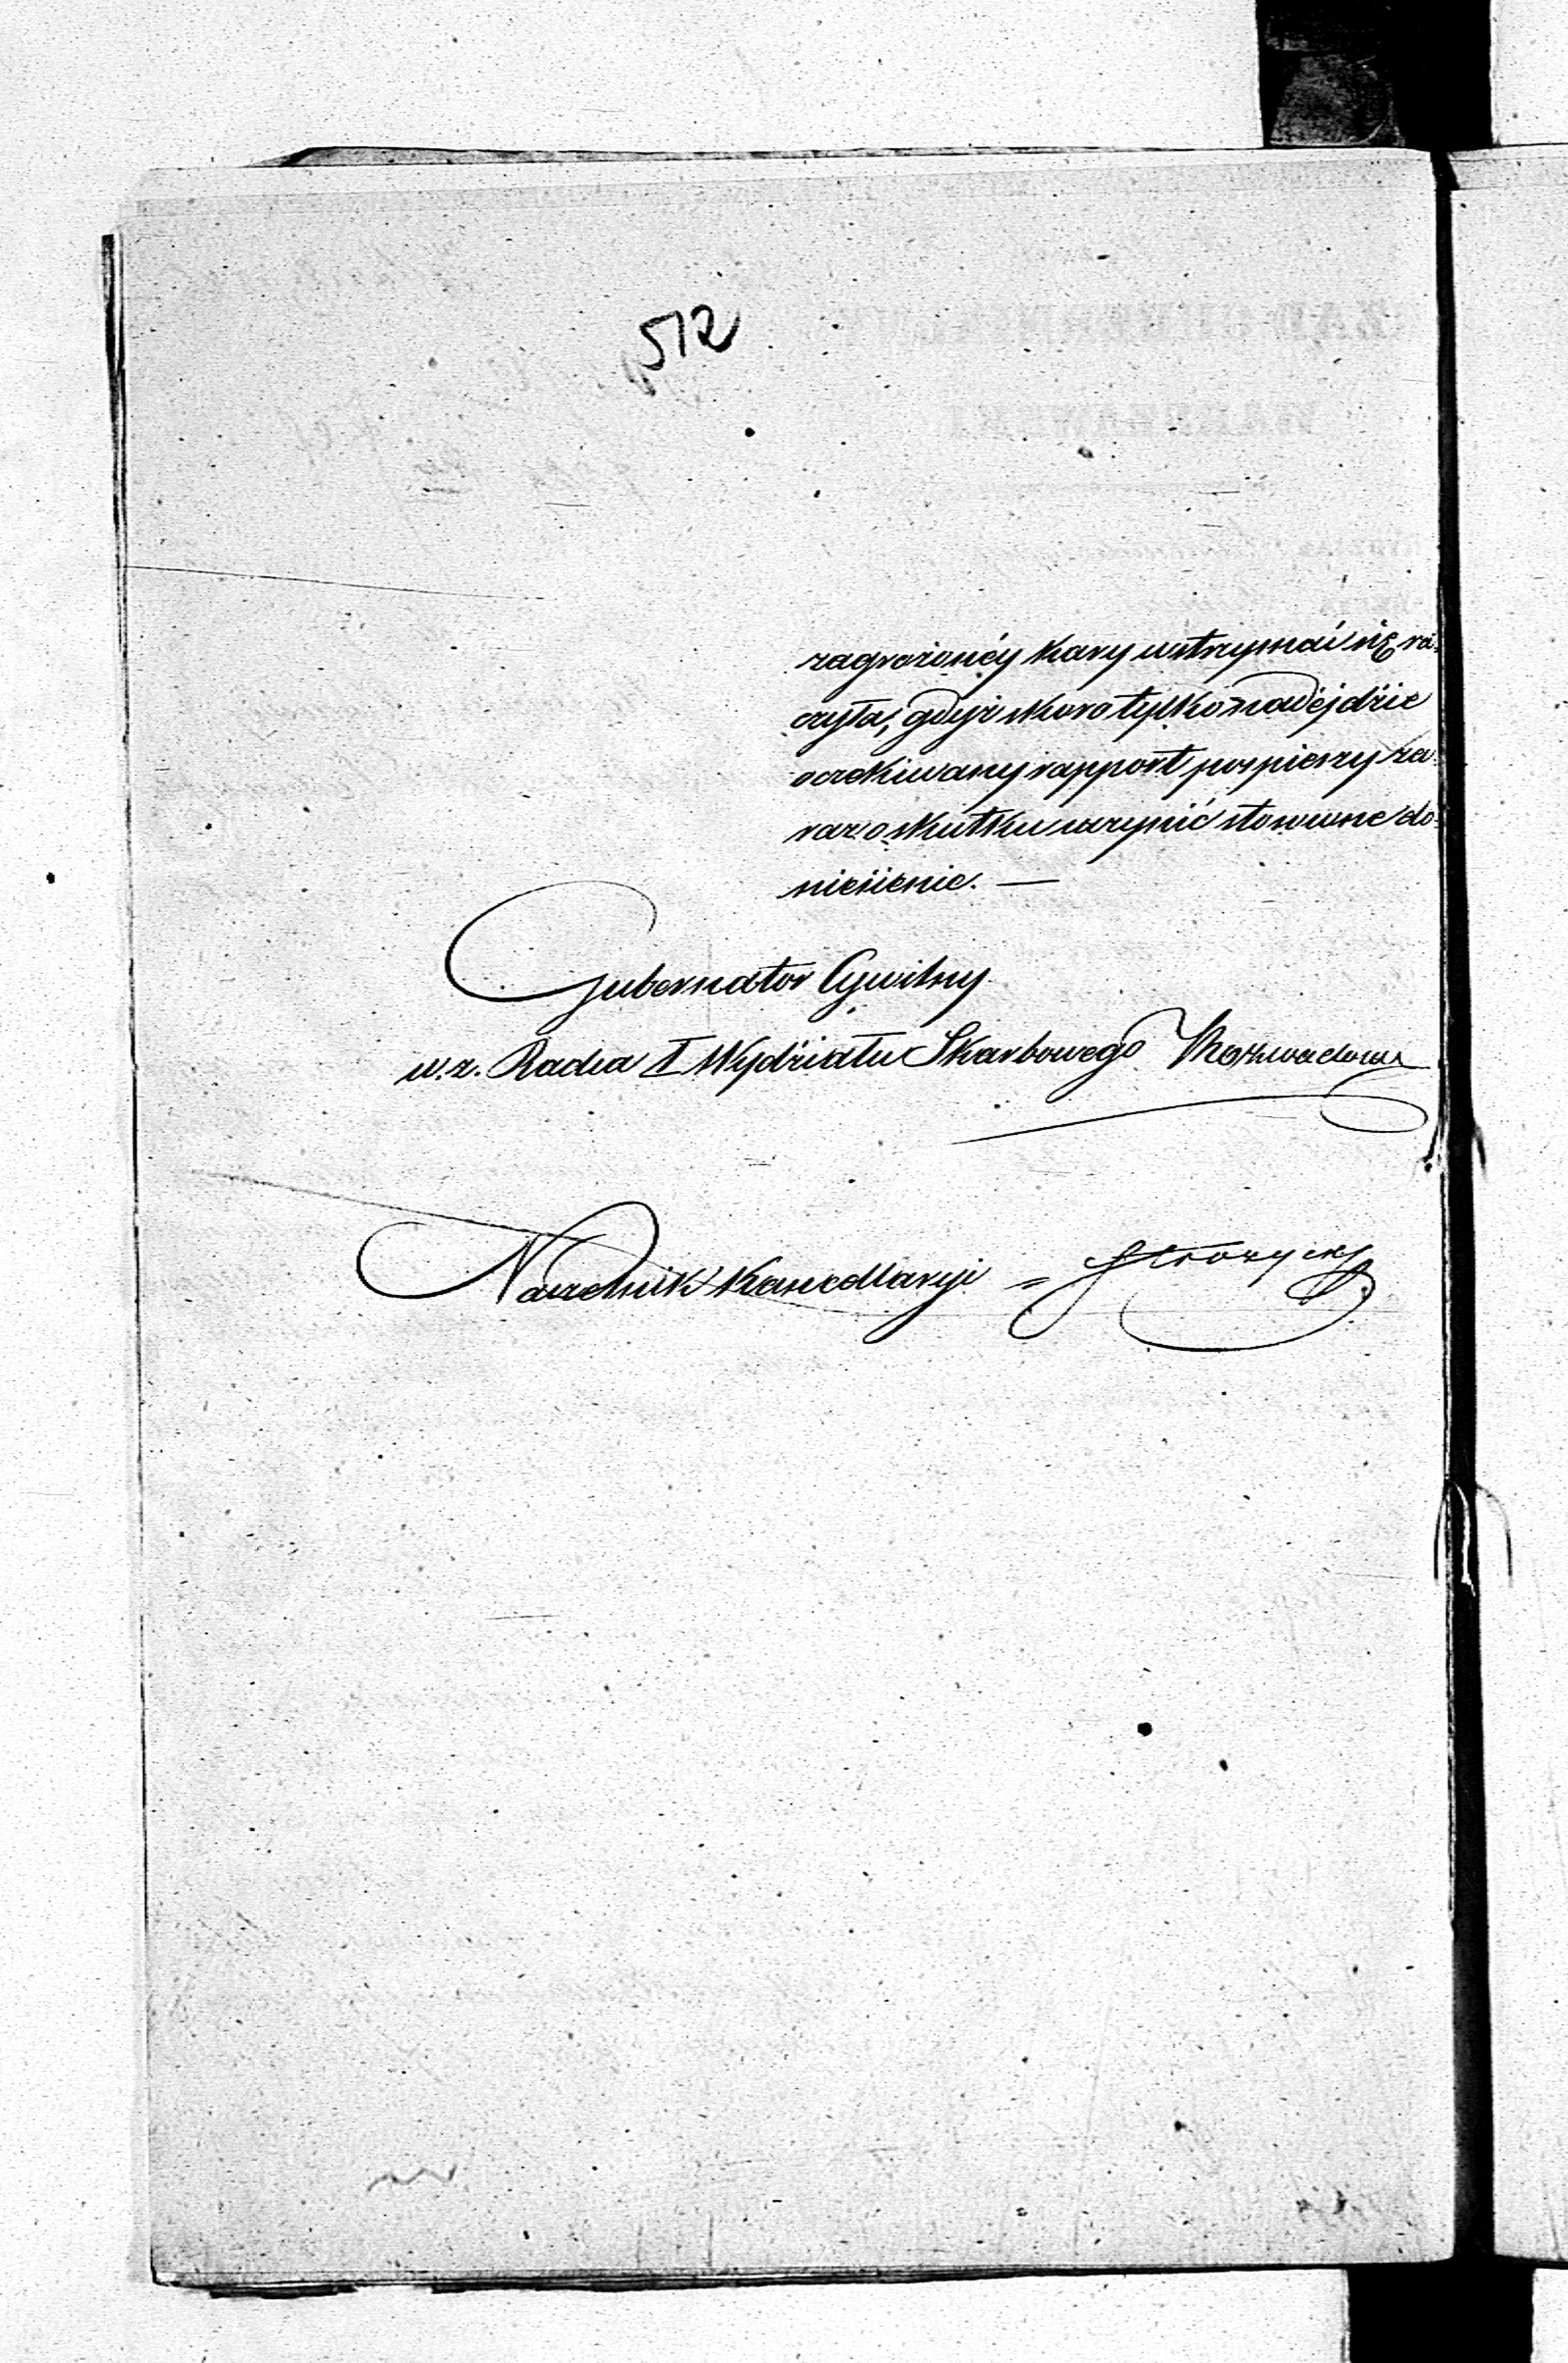 512
zagrożonéj kary wstrzymać się ra-
czyła, gdyż skoro tylko nadejdzie
oczekiwany rapport pospieszy za-
raz o skutku uczynić stosowne do-
niesienie. —
Gubernator Cywilny
w. z. Radca I Wydziału Skarbowego
Naczelnik Kancellaryi =